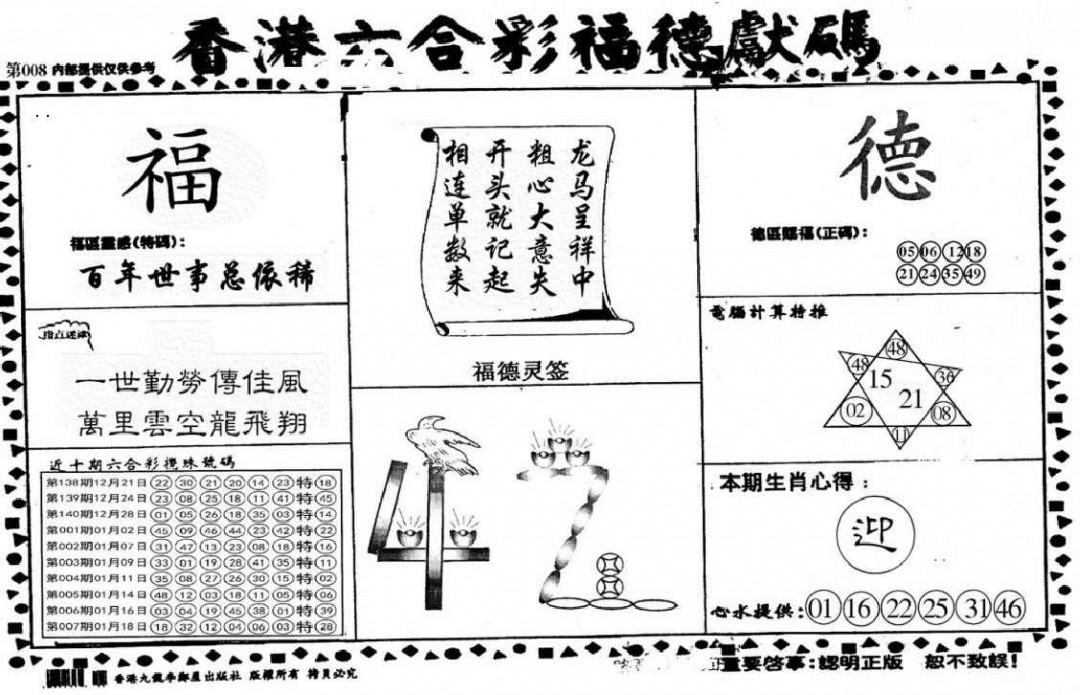 香港六合彩福德獻碼
第008 内部提供仅供参考
福
福區靈感(特碼):
百年世事总依稀
指点迷津
一世勤勞傳佳風
萬里雲空龍飛翔
近十期六合彩攪珠號碼
第138期12月21日 22 30 21 20 14 23 特 18
第139期12月24日 23 08 25 18 11 41 特 45
第140期12月28日 01 05 26 18 35 03 特 14
第001期01月02日 45 09 46 44 23 42 特 22
第002期01月07日 31 47 13 23 08 18 特 16
第003期01月09日 33 01 19 28 41 35 特 11
第004期01月11日 35 08 27 26 30 15 特 02
第005期01月14日 48 12 03 18 11 05 特 06
第006期01月16日 03 04 19 45 38 01 特 39
第007期01月18日 18 32 12 04 06 03 特 28
龙马呈祥中
粗心大意失
开头就记起
相连单数来
福德灵签
德
德區賜福(正碼):
05 06 12 18
21 24 35 49
電腦計算特推
48
48 15 36
21
02 08
11
本期生肖心得:
迎
心水提供: 01 16 22 25 31 46
香港九龍李鄭屋出版社 版權所有 拷貝必究
重要啓事:認明正版 恕不致誤!